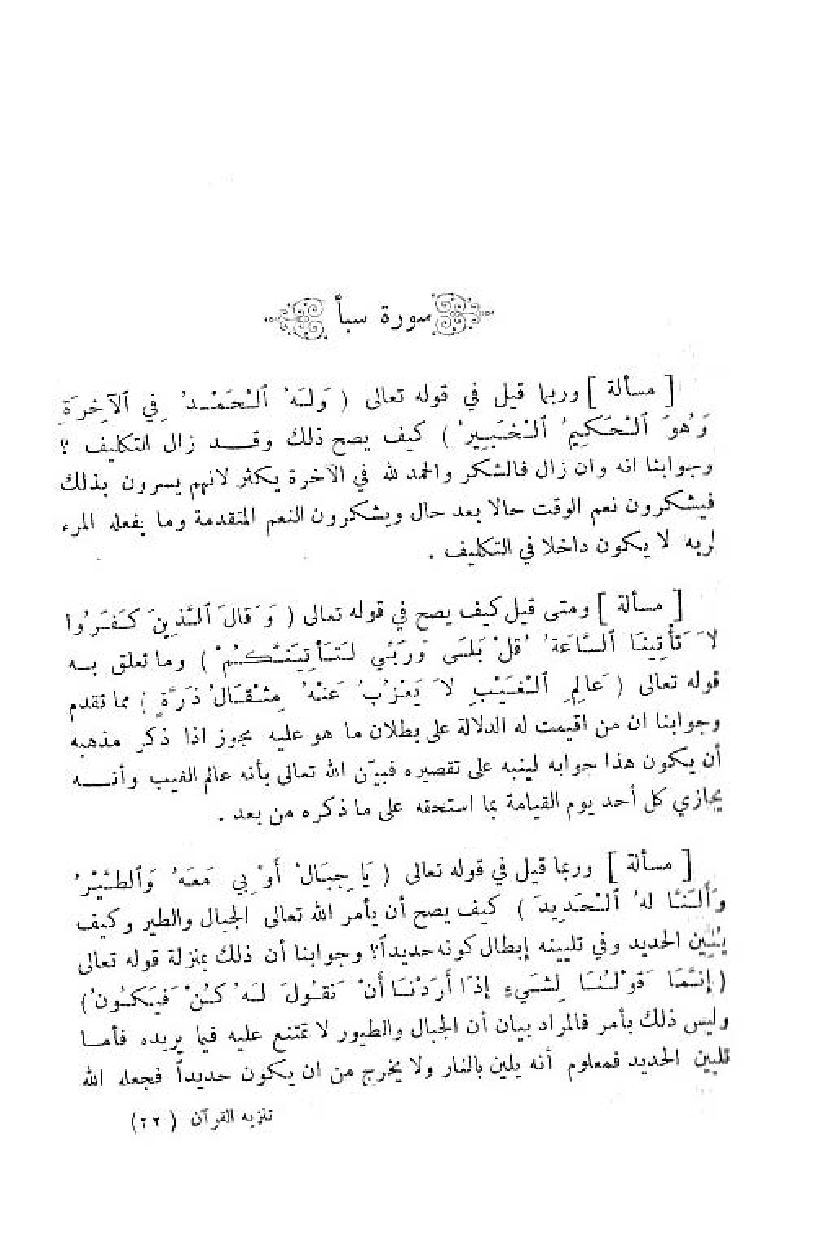 سورة سبأ
[ مسألة ] وربما قيل في قوله تعالى ( وَلَهُ ٱلْحَمْدُ فِي ٱلْآخِرَةِ
وَهُوَ ٱلْحَكِيمُ ٱلْخَبِيرُ ) كيف يصح ذلك وقد زال التكليف ؟
وجوابنا انه وان زال فالشكر والحمد لله في الآخرة يكثر لانهم يسرون بذلك
فيشكرون نعم الوقت حالا بعد حال ويشكرون النعم المتقدمة وما يفعله المرء
لربه لا يكون داخلا في التكليف .
[ مسألة ] ومتى قيل كيف يصح في قوله تعالى ( وَقَالَ ٱلَّذِينَ كَفَرُوا
لَا تَأْتِينَا ٱلسَّاعَةُ قُلْ بَلَى وَرَبِّي لَتَأْتِيَنَّكُمْ ) وما تعلق به
قوله تعالى ( عَالِمِ ٱلْغَيْبِ لَا يَعْزُبُ عَنْهُ مِثْقَالُ ذَرَّةٍ ) مما تقدم
وجوابنا ان من اقيمت له الدلالة على بطلان ما هو عليه يجوز اذا ذكر مذهبه
أن يكون هذا جوابه لينبه على تقصيره فبيّن الله تعالى بأنه عالم الغيب وأنه
يجازي كل أحد يوم القيامة بما استحقه على ما ذكره من بعد .
[ مسألة ] وربما قيل في قوله تعالى ( يَا جِبَالُ أَوِّبِي مَعَهُ وَٱلطَّيْرَ
وَأَلَنَّا لَهُ ٱلْحَدِيدَ ) كيف يصح أن يأمر الله تعالى الجبال والطير وكيف
يُلَيِّن الحديد وفي تليينه إبطال كونه حديداً؟ وجوابنا أن ذلك بمنزلة قوله تعالى
( إِنَّمَا قَوْلُنَا لِشَيْءٍ إِذَا أَرَدْنَا أَنْ نَقُولَ لَهُ كُنْ فَيَكُونُ )
وليس ذلك بأمر فالمراد بيان أن الجبال والطيور لا تمتنع عليه فيما يريده فأما
تليين الحديد فمعلوم أنه يلين بالنار ولا يخرج من ان يكون حديداً فجعله الله
تنزيه القرآن ( ٢٢ )